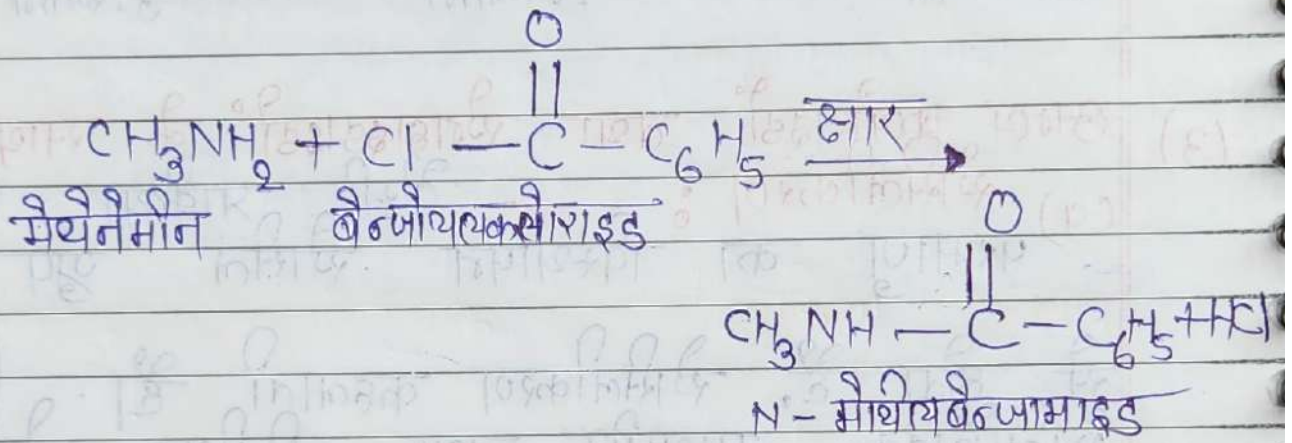 O
||
CH₃NH₂ + Cl — C — C₆H₅ क्षार →
मैथेनैमीन बैन्जोयलक्लोराइड
O
||
CH₃NH — C — C₆H₅ + HCl
N - मैथिलबैन्जामाइड